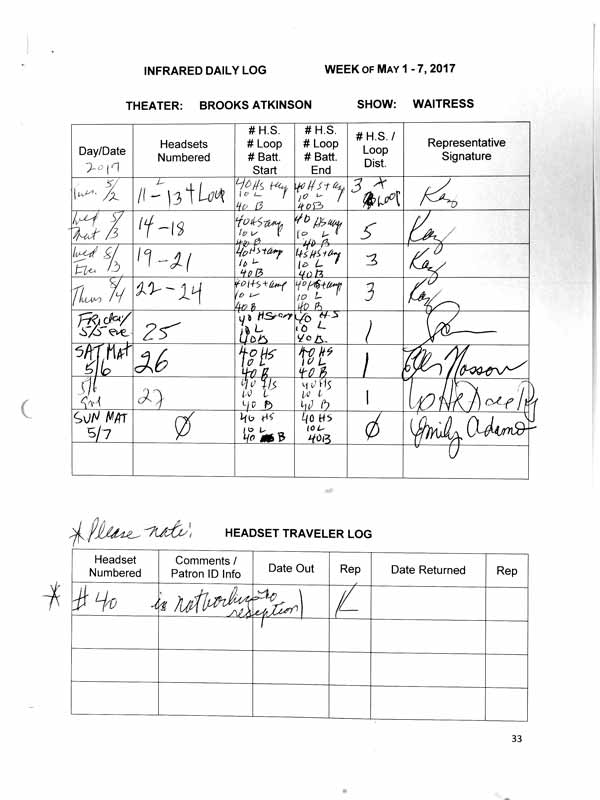 INFRARED DAILY LOG WEEK OF MAY 1 - 7, 2017
THEATER: BROOKS ATKINSON SHOW: WAITRESS
Day/Date 2017 Headsets Numbered # H.S. # Loop # Batt. Start # H.S. # Loop # Batt. End # H.S. / Loop Dist. Representative Signature
Tues. 5/2 11-13 + Loop 40 HS + amp 10 L 40 B 40 HS + amp 10 L 40 B 3 + Loop Kay
Wed Mat 5/3 14-18 40 HS + amp 10 L 40 B 40 HS amp 10 L 40 B 5 Kay
Wed Eve 5/3 19-21 40 HS + amp 10 L 40 B HS + amp 10 L 40 B 3 Kay
Thurs 5/4 22-24 40 HS + amp 10 L 40 B 40 HS + amp 10 L 40 B 3 Kay
FRIday 5/5 eve 25 40 HS amp 10 L 40 B 40 H.S 10 L 40 B. 1
SAT MAT 5/6 26 40 HS 10 L 40 B 40 HS 10 L 40 B 1
5/6 27 40 HS 10 L 40 B 40 HS 10 L 40 B 1
SUN MAT 5/7 Ø 40 HS 10 L 40 B 40 HS 10 L 40 B Ø Emily Adams
* Please note: HEADSET TRAVELER LOG
Headset Numbered Comments / Patron ID Info Date Out Rep Date Returned Rep
* # 40 is not working no reception K
33